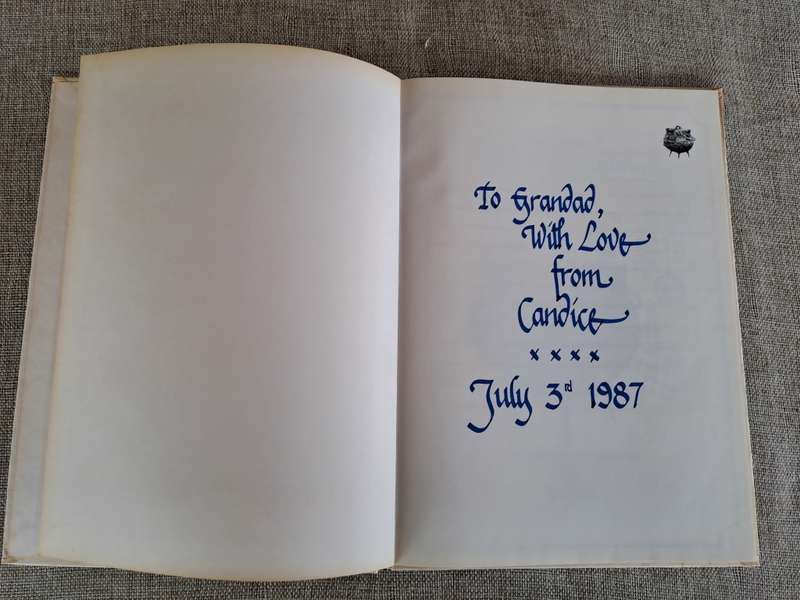 To Grandad,
With Love
from
Candice
x x x x
July 3rd 1987